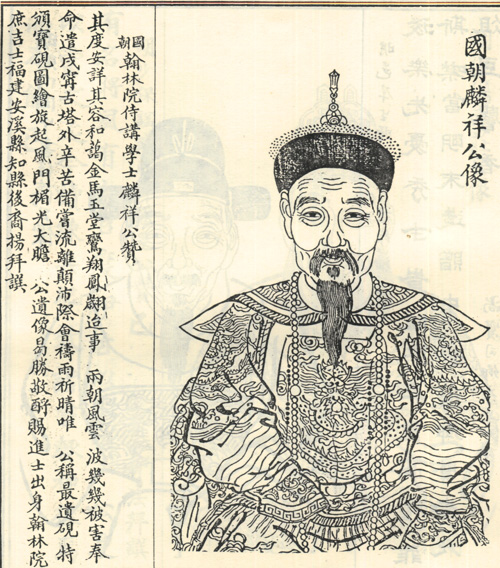 國朝麟祥公像
國朝翰林院侍講學士麟祥公贊
其度安詳其容和藹金馬玉堂鸞翔鳳翽迨事 兩朝風雲 波幾幾被害奉
命遣戍甯古塔外辛苦備嘗流離顛沛際會禱雨祈晴唯 公稱最遺硯 特
頒寶硯圖繪旋起風門楣光大瞻 公遺像曷勝敬酹賜進士出身翰林院
庶吉士福建安溪縣知縣後裔揚拜譔